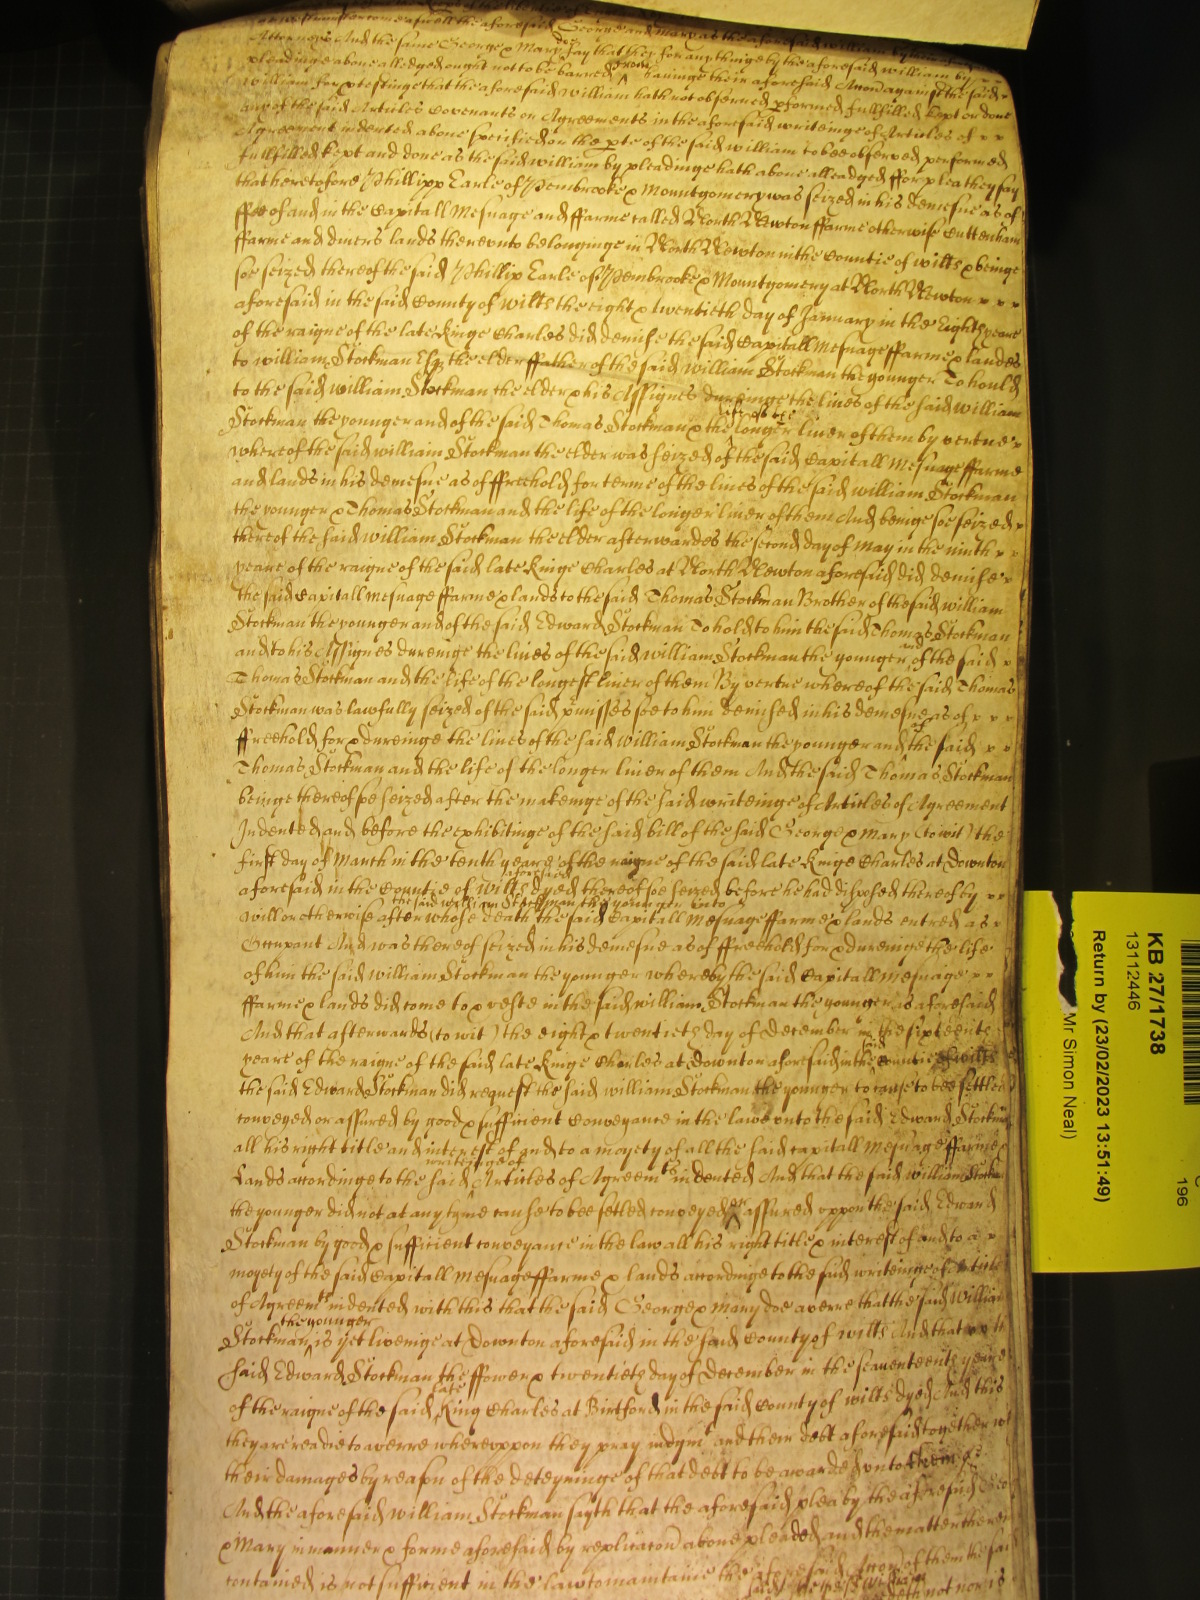 come aswell the aforesaid George and Mary as the aforesaid William by their
Attorneys And the same George & Mary doe say that they for any thinge by the aforesaid William by
pleadinge above alledged ought not to be barred from havinge their aforesaid Accon against the said
William for ptestinge that the aforesaid William hath not observed pformed fullfilled kept or done
any of the said Articles Covenants or Agreements in the aforesaid writeinge of Articles of
Agreement indented above specified on the pte of the said William to bee observed performed
fullfilled kept and done as the said William by pleadinge hath above alleadged ffor plea they say
that heretofore Phillipp Earle of Pembrooke & Mountgomery was seized in his demesne as of
ffee of and in the Capitall Mesuage and ffarme called North Newton ffarme otherwise Cuttenham
ffarme and divers lands therevnto belonginge in North Newton in the Countie of Wilts & beinge
soe seized thereof the said Phillip Earle of Pembrooke & Mountgomery at North Newton
aforesaid in the said County of Wilts the eight & twentieth day of January in the Eighth yeare
of the raigne of the late Kinge Charles did demise the said Capitall Mesuage ffarme & landes
to William Stockman Esqr the elder ffather of the said William Stockman the younger To hould
to the said William Stockman the elder & his Assignes dureinge the lives of the said William
Stockman the younger and of the said Thomas Stockman & the life of the longer liver of them by vertue
whereof the said William Stockman the elder was seized of the said Capitall Mesuage ffarme
and lands in his demesne as of ffreehold for terme of the lives of the said William Stockman
the younger & Thomas Stockman and the life of the longer liver of them And beinge soe seized
thereof the said William Stockman the elder afterwardes the second day of May in the ninth
yeare of the raigne of the said late Kinge Charles at North Newton aforesaid did demise
the said Capitall Mesuage ffarme & lands to the said Thomas Stockman Brother of the said William
Stockman the younger and of the said Edward Stockman To hold to him the said Thomas Stockman
and to his Assignes dureinge the lives of the said William Stockman the younger and of the said
Thomas Stockman and the life of the longest liver of them By vertue whereof the said Thomas
Stockman was lawfully seized of the said pmisses soe to him demised in his demesne as of
ffreehold for & dureinge the lives of the said William Stockman the younger and of the said
Thomas Stockman and the life of the longer liver of them And the said Thomas Stockman
beinge thereof soe seized after the makeinge of the said writeinge of Articles of Agreement
Indented and before the exhibitinge of the said bill of the said George & Mary (to wit) the
first day of March in the tenth yeare of the raigne of the said late Kinge Charles at Downton
aforesaid in the Countie of Wilts aforesaid dyed thereof soe seized before he had disposed thereof by
will or otherwise after whose death the said William Stockman the younger into the said Capitall Mesuage ffarme & lands entred as
Occupant And was thereof seized in his demesne as of ffreehold for & dureinge the life
of him the said William Stockman the younger whereby the said Capitall Mesuage
ffarme & lands did come to & veste in the said William Stockman the younger as aforesaid
And that afterwards (to wit) the eight & twentieth day of December in the sixteenth
yeare of the raigne of the said late Kinge Charles at Downton aforesaid in the said Countie of Wilts
the said Edward Stockman did request the said William Stockman the younger to cause to bee settled
conveyed or assured by good & sufficient Conveyance in the lawe vnto the said Edward Stockman
all his right title and interest of and to a moyety of all the said capitall Mesuage ffarme &
Lands accordinge to the said writeinge of Articles of Agreemts indented And that the said William Stockman
the younger did not at any tyme cause to bee setled conveyed or assured vppon the said Edward
Stockman by good & sufficient conveyance in the law all his right title & interest of and to a
moyety of the said Capitall Mesuage ffarme & lands accordinge to the said writeinge of Article
of Agreemts indented with this that the said George & Mary doe averre that the said William
Stockman the younger is yet liveinge at Downton aforesaid in the said County of Wilts And that the
said Edward Stockman the ffower & twentieth day of December in the seaventeenth yeare
of the raigne of the said late King Charles at Birtford in the said County of Wilts dyed And this
they are readie to averre wherevppon they pray iudgmt and their debt aforesaid together wth
their damages by reason of the deteyninge of that debt to be awarded vnto them &c
And the aforesaid William Stockman sayth that the aforesaid plea by the aforesaid Geo
& Mary in manner & forme aforesaid by replicacon above pleaded and the matter therein
contained is not sufficient in the law to maintaine the aforesaid Accon of them the said
KB 27/1738
13112446
Return by (23/02/2023 13:51:49)
Mr Simon Neal)
196